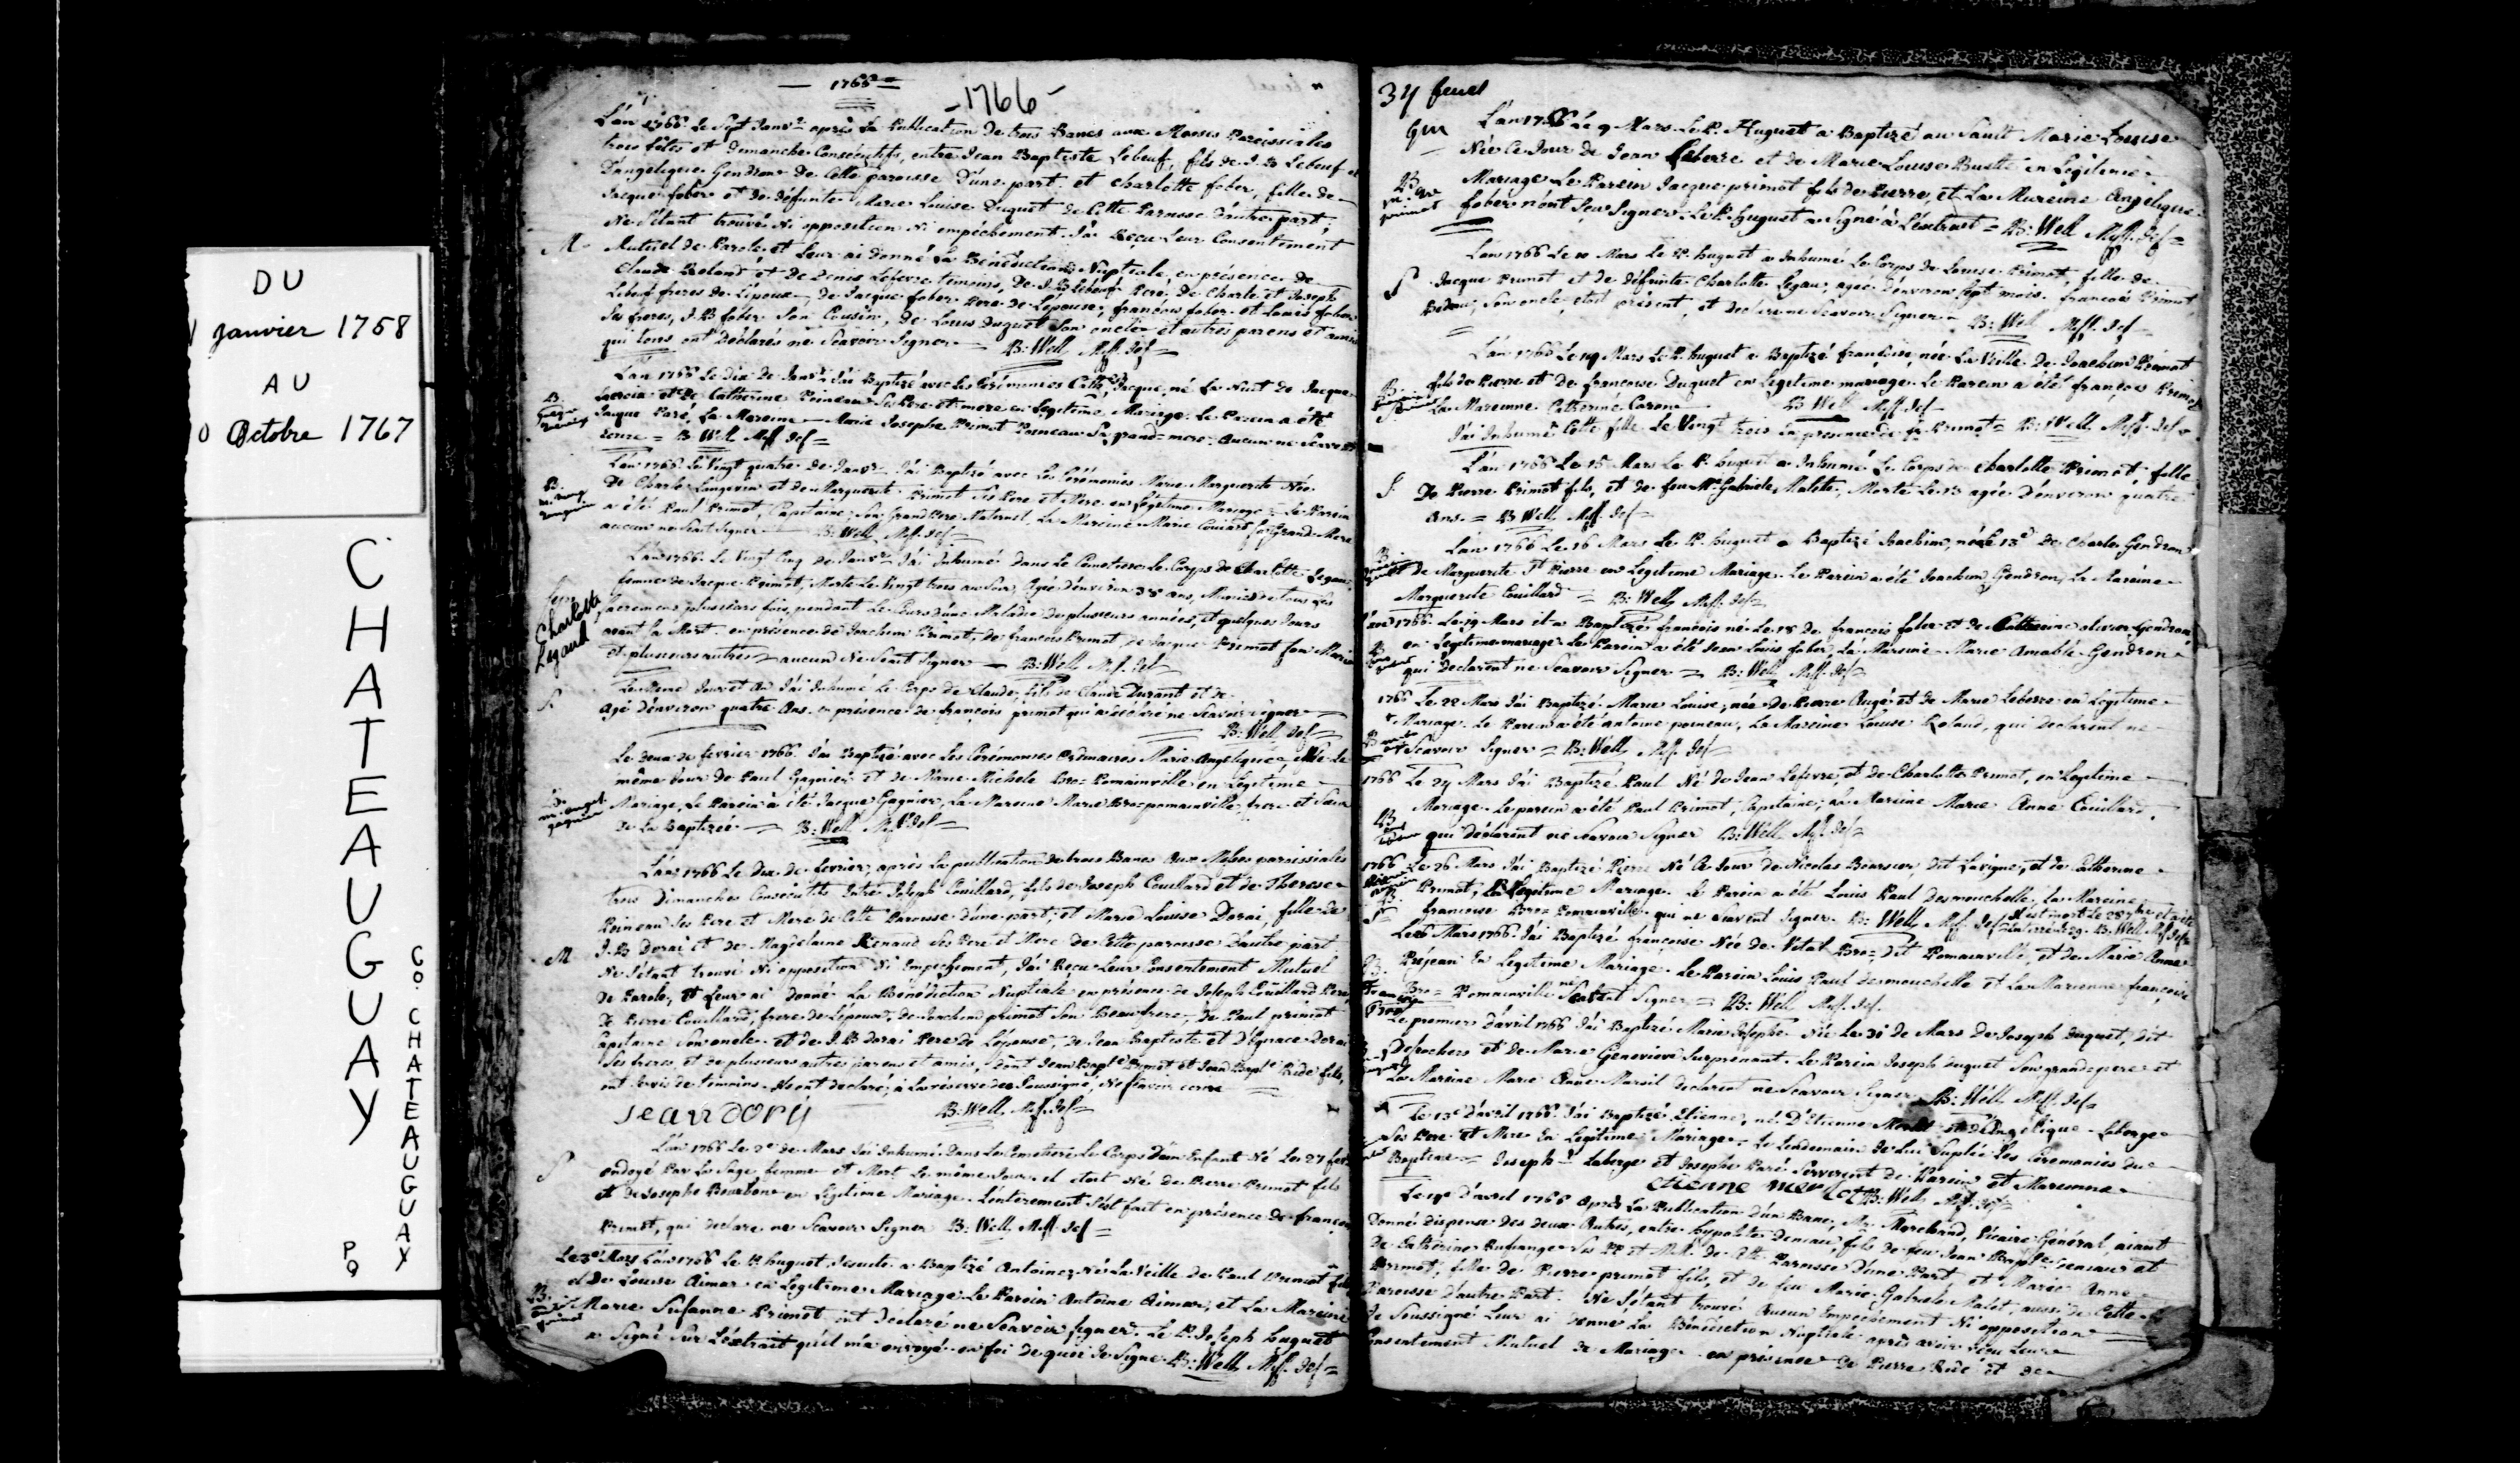 DU
janvier 1758
AU
Octobre 1767
CHATEAUGUAY
CO. CHATEAUGUAY
PQ
1766
-1766-
L'an 1766 Le Sept Janvr après La Publication de trois Bancs aux Messes Paroissiales
trois fêtes et Dimanche Consécutifs, entre Jean Baptiste Lebeuf, fils de J. B Lebeuf et
D'angelique Gendron de Cette paroisse D'une part, et charlotte faber, fille de
Jacque faber et de défunte Marie Louise Duquet de Cette Paroisse d'autre part;
Ne S'étant trouvé Ni opposition Ni empêchement J'ai Reçu Leur Consentement
M
Mutuel de Parole, et Leur ai donné La Bénédiction Nuptiale, en présence de
Claude Roland et de Denis Lefevre temoins, de J. B Lebeuf Pere, de Charle et Joseph
Lebeuf freres de L'époux, de Jacque faber Pere de L'épouse, françois faber et Louis faber
Ses freres, J. B faber Son Cousin, de Louis Duquet Son oncle et autres parens et amis
qui tous ont Déclarés ne Scavoir Signer B: Well Miss. Jes
L'an 1766 Le dix de Janvr J'ai Baptizé avec Les Cérémonies Jacque, né La Nuit de Jacque
et De Catherine Poineau Ses Pere et mere en Legitime Mariage. Le Parein a été
Jacque Paré, La Mareine Marie Josephe Primot Poineau Sa grand=mere. aucun ne Scavent
Ecrire = B Well Miss Jes
L'an 1766 Le Vingt quatre de Janvr J'ai Baptizé avec Les Cérémonies Marie Marguerite Née
De Charle Langevin et de Marguerite Primot Ses Pere et Mere en Légitime Mariage Le Parein
a été Paul Primot, Capitaine, Son Grand Pere Maternel, La Mareine Marie Couiard Sa Grand Mere
aucun ne Scait Signer B: Well Miss. Jes
L'an 1766 Le Vingt Cinq de Janvr J'ai Inhumé dans Le Cimetiere Le Corps de Charlotte Legau,
Charlotte
Legault
femme de Jacque Primot, Morte Le Vingt trois au Soir, Agée d'environ 38 ans, Munie de tous Les
Sacremens plusieurs fois, pendant Le Cours d'une Maladie de plusieurs années, et quelques Jours
avant Sa Mort. en présence de Joachim Primot, de françois Primot, de Jacque Primot Son Mari
et plusieurs autres aucun Ne Scait Signer B: Well Miss. Jes
S
Le Même Jour et an J'ai Inhumé Le Corps de Claude, fils de Claude Durant et de
Agé d'environ quatre Ans, en présence de françois primot qui a déclaré ne Scavoir Signer
B: Well Jes
Le deux de fevrier 1766 J'ai Baptizé avec Les Cérémonies Ordinaires Marie Angelique, Née Le
même Jour de Paul Gagnier et de Marie Michele Bro= Pomainville en Legitime
Mariage, Le Parein a été Jacque Gagnier, La Mareine Marie Bro= pomainville, frere et Soeur
de La Baptizée B: Well Miss. Jes
L'an 1766 Le Dix de fevrier, après La publication de trois Bancs aux Messes paroissiales
trois Dimanches Consécutifs Entre Joseph Couillard, fils de Joseph Couillard et de Therese
Poineau Ses Pere et Mere de Cette Paroisse d'une part, et Marie Louise Dorai, fille de
J. B Dorai et de Magdelaine Renaud Ses Pere et Mere de Cette paroisse D'autre part
M
Ne S'étant trouvé Ni opposition Ni Empêchement, J'ai Reçu Leur Consentement Mutuel
De Parole, et Leur ai donné La Bénédiction Nuptiale en présence de Joseph Couillard Pere,
De Pierre Couillard, frere de L'époux, de Joachim primot Son Beau frere, de Paul primot
Capitaine Son oncle, et de J. B Dorai Pere de L'épouse, de Jean Baptiste et D'Ignace Dorai
Ses freres et de plusieurs autres parens et amis, dont Jean Bapte Primot et Jean Bapte Ride fils,
ont Servis de temoins. Ils ont declaré, à La réserve des Soussigné, Ne Scavoir ecrire
jean dorij B: Well Miss. Jes
L'an 1766 Le 2e de Mars J'ai Inhumé Dans Le Cimetiere Le Corps D'un Enfant Né Le 27 fevr
S
ondoyé Par La Sage femme et Mort Le même Jour il etoit Né de Pierre Primot fils
et de Josephe Bourbon en Légitime Mariage. L'enterrement S'est fait en présence de françois
Primot, qui declare ne Scavoir Signer B: Well Miss. Jes
Le 3e Mars L'an 1766 Le P. huguet Jesuite a Baptizé Antoine, Né La Veille de Paul Primot fils
et De Louise Aimar en Legitime Mariage Le Parein Antoine Aimar, et La Mareine
Marie Susanne Primot ont Déclaré ne Scavoir Signer. Le P. Joseph huguet
a Signé Sur L'extrait qu'il m'a envoyé. en foi de quoi Je Signe B: Well, Miss. Jes
34 feuil
L'an 1766 Le 9 Mars Le P. Huguet a Baptizé au Sault Marie Louise
Née Ce Jour de Jean Leberre et de Marie Louise Ruette en Légitime
Mariage Le Parein Jacque primot fils de Pierre, et La Mareine Angelique
faber n'ont Scu Signer. Le P. Huguet a Signé à L'extrait = B: Well Miss. Jes
L'an 1766 Le 10 Mars Le P. huguet a Inhumé Le Corps de Louise Primot, fille de
S
Jacque Primot et de défunte Charlotte Legau, agée d'environ Sept mois. françois Primot
Bedeau, Son oncle, etoit présent, et declare ne Scavoir Signer B: Well Miss. Jes
L'an 1766 Le 19 Mars Le P. huguet a Baptizé françoise, née La Veille de Joachim Primot
fils de Pierre et de françoise Duquet en Legitime mariage. Le Parein a été françois Primot
La Mareinne Catherine Caron B Well Miss. Jes
J'ai Inhumé Cette fille Le Vingt trois En presence de Primot = B: Well Miss. Jes
L'an 1766 Le 15 Mars Le P. huguet a Inhumé Le Corps de Charlotte Primot, fille
S
De Pierre Primot fils, et de feu Me Gabriele Malete, Morte Le 13 agée D'environ quatre
Ans. = B Well, Miss. Jes
L'an 1766 Le 16 Mars Le P. huguet a Baptizé Joachim, né Le 13e de Charles Gendron
et de Marguerite St Pierre en Legitime Mariage. Le Parein a été Joachim Gendron, La Mareine
Marguerite Couillard = B: Well, Miss. Jes
L'an 1766 Le 19 Mars il a Baptizé françois né Le 18 de françois faber et de Catherine Gendron
en Légitime mariage Le Parein a été Jean Louis faber, La Mareine Marie Amable Gendron
qui declarent ne Scavoir Signer = B: Well, Miss. Jes
1766 Le 22 Mars J'ai Baptizé Marie Louise, née de Pierre Augé et de Marie Leberre en Legitime
Mariage. Le Parein a été Antoine poineau, La Mareine Louise Roland, qui declarent ne
Scavoir Signer = B: Well, Miss. Jes
1766 Le 24 Mars J'ai Baptizé Paul Né de Jean Lefevre, et de Charlotte Primot, en Legitime
Mariage. Le parein a été Paul Primot, Capitaine; La Mareine Marie Anne Couillard,
qui déclarent ne Scavoir Signer B: Well, Miss. Jes
1766 Le 26 Mars J'ai Baptizé Pierre Né Ce Jour de Nicolas Boursier, dit Lavigne, et de Catherine
Primot, En Légitime Mariage. Le Parein a été Louis Paul Desmouchelle, La Mareine
françoise Bro= Pomainville qui ne Scavent Signer. B: Well, Miss. Jes
Le 26 Mars 1766 J'ai Baptizé françoise Née de Vital Bro= Dit Pomainville, et de Marie Anne
Préjean En Legitime Mariage. Le Parein Louis Paul desmouchelle et La Mareinne françoise
Bro= Pomainville ne Scavent Signer = B: Well Miss. Jes.
Le premier d'avril 1766 J'ai Baptizé Marie Josephe Née Le 31 de Mars De Joseph Duquet, Dit
Desrochers et de Marie Genevieve Surprenant. Le Parein Joseph duquet Son grandpere et
La Mareine Marie Anne Marsil declarent ne Scavoir Signer B: Well Miss. Jes
Le 13e d'avril 1766 J'ai Baptizé Etienne, né D'Etienne et d'Angelique Laberge
Ses Pere et Mere En Legitime Mariage. Le Lendemain Je Lui Suplée Les Cérémonies du
Baptême Joseph Laberge et Josephe Paré Serverent de Parein et Mareinne
etienne B: Well Miss. Jes
Le d'avril 1766 après La Publication d'un Banc, Mr Marchand, Vicaire Général, aiant
Donné dispense des deux Autres, entre hypolite deneau, fils de feu Jean Bapte deneau et
De Catherine Ses PP et MM. de Cette Paroisse D'une Part, et Marie Anne
Primot, fille de Pierre primot fils, et de feu Marie Gabriele Malet, aussi de Cette
Paroisse d'autre Part. Ne S'étant trouvé Aucun Empêchement Ni opposition
Je Soussigné Leur ai Donné La Bénédiction Nuptiale après avoir reçu Leur
Consentement Mutuel de Mariage en présence de Pierre Ridé et de